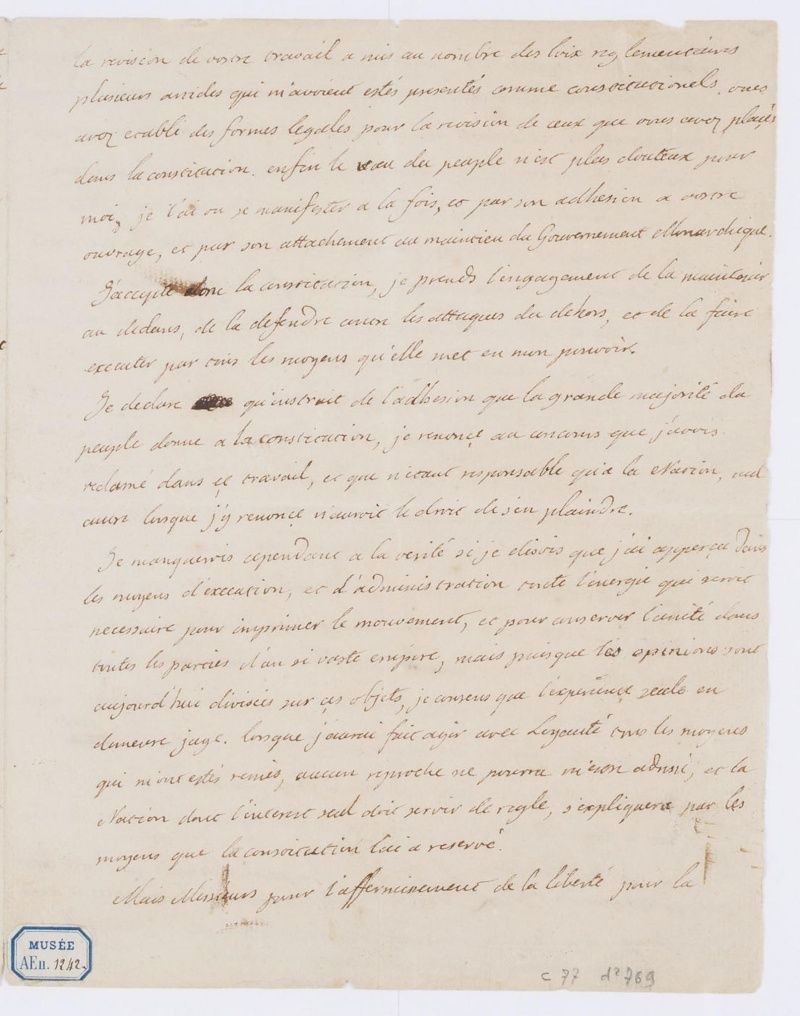 la revision de votre travail a mis au nombre des loix reglementaires
plusieurs articles qui m'avoient estés presentés comme constitutionels. vous
avez etabli des formes legales pour la revision de ceux que vous avez placés
dans la constitution. enfin le vœu du peuple n'est plus douteux pour
moi, je l'ai vu se manifester a la fois, et par son adhesion a votre
ouvrage, et par son attachement au maintien du Gouvernement Monarchique.
J'accepte donc la constitution, je prends l'engagement de la maintenir
au dedans, de la defendre contre les attaques du dehors, et de la faire
executer par tous les moyens qu'elle met en mon pouvoir.
Je declare qu'instruit de l'adhesion que la grande majorité du
peuple donne a la constitution, je renonce au concours que j'avois
reclamé dans ce travail, et que n'etant responsable qu'a la Nation, nul
autre lorsque j'y renonce n'auroit le droit de s'en plaindre.
Je manquerois cependant a la verité si je disois que j'ai apperçu dans
les moyens d'execution, et d'administration toute l'energie qui seroit
necessaire pour imprimer le mouvement, et pour conserver l'unité dans
toutes les parties d'un si vaste empire, mais puisque les opinions sont
aujourd'hui divisées sur ces objets, je consens que l'experience seule en
demeure juge. lorsque j'aurai fait agir avec Loyauté tous les moyens
qui m'ont estés remis, aucun reproche ne pourra m'etre adressé, et la
Nation dont l'interest seul doit servir de regle, s'expliquera par les
moyens que la constitution lui a reservé.
Mais Messieurs pour l'affermissement de la liberté pour la
MUSÉE
AEII. 1242.
C 77 dr 769